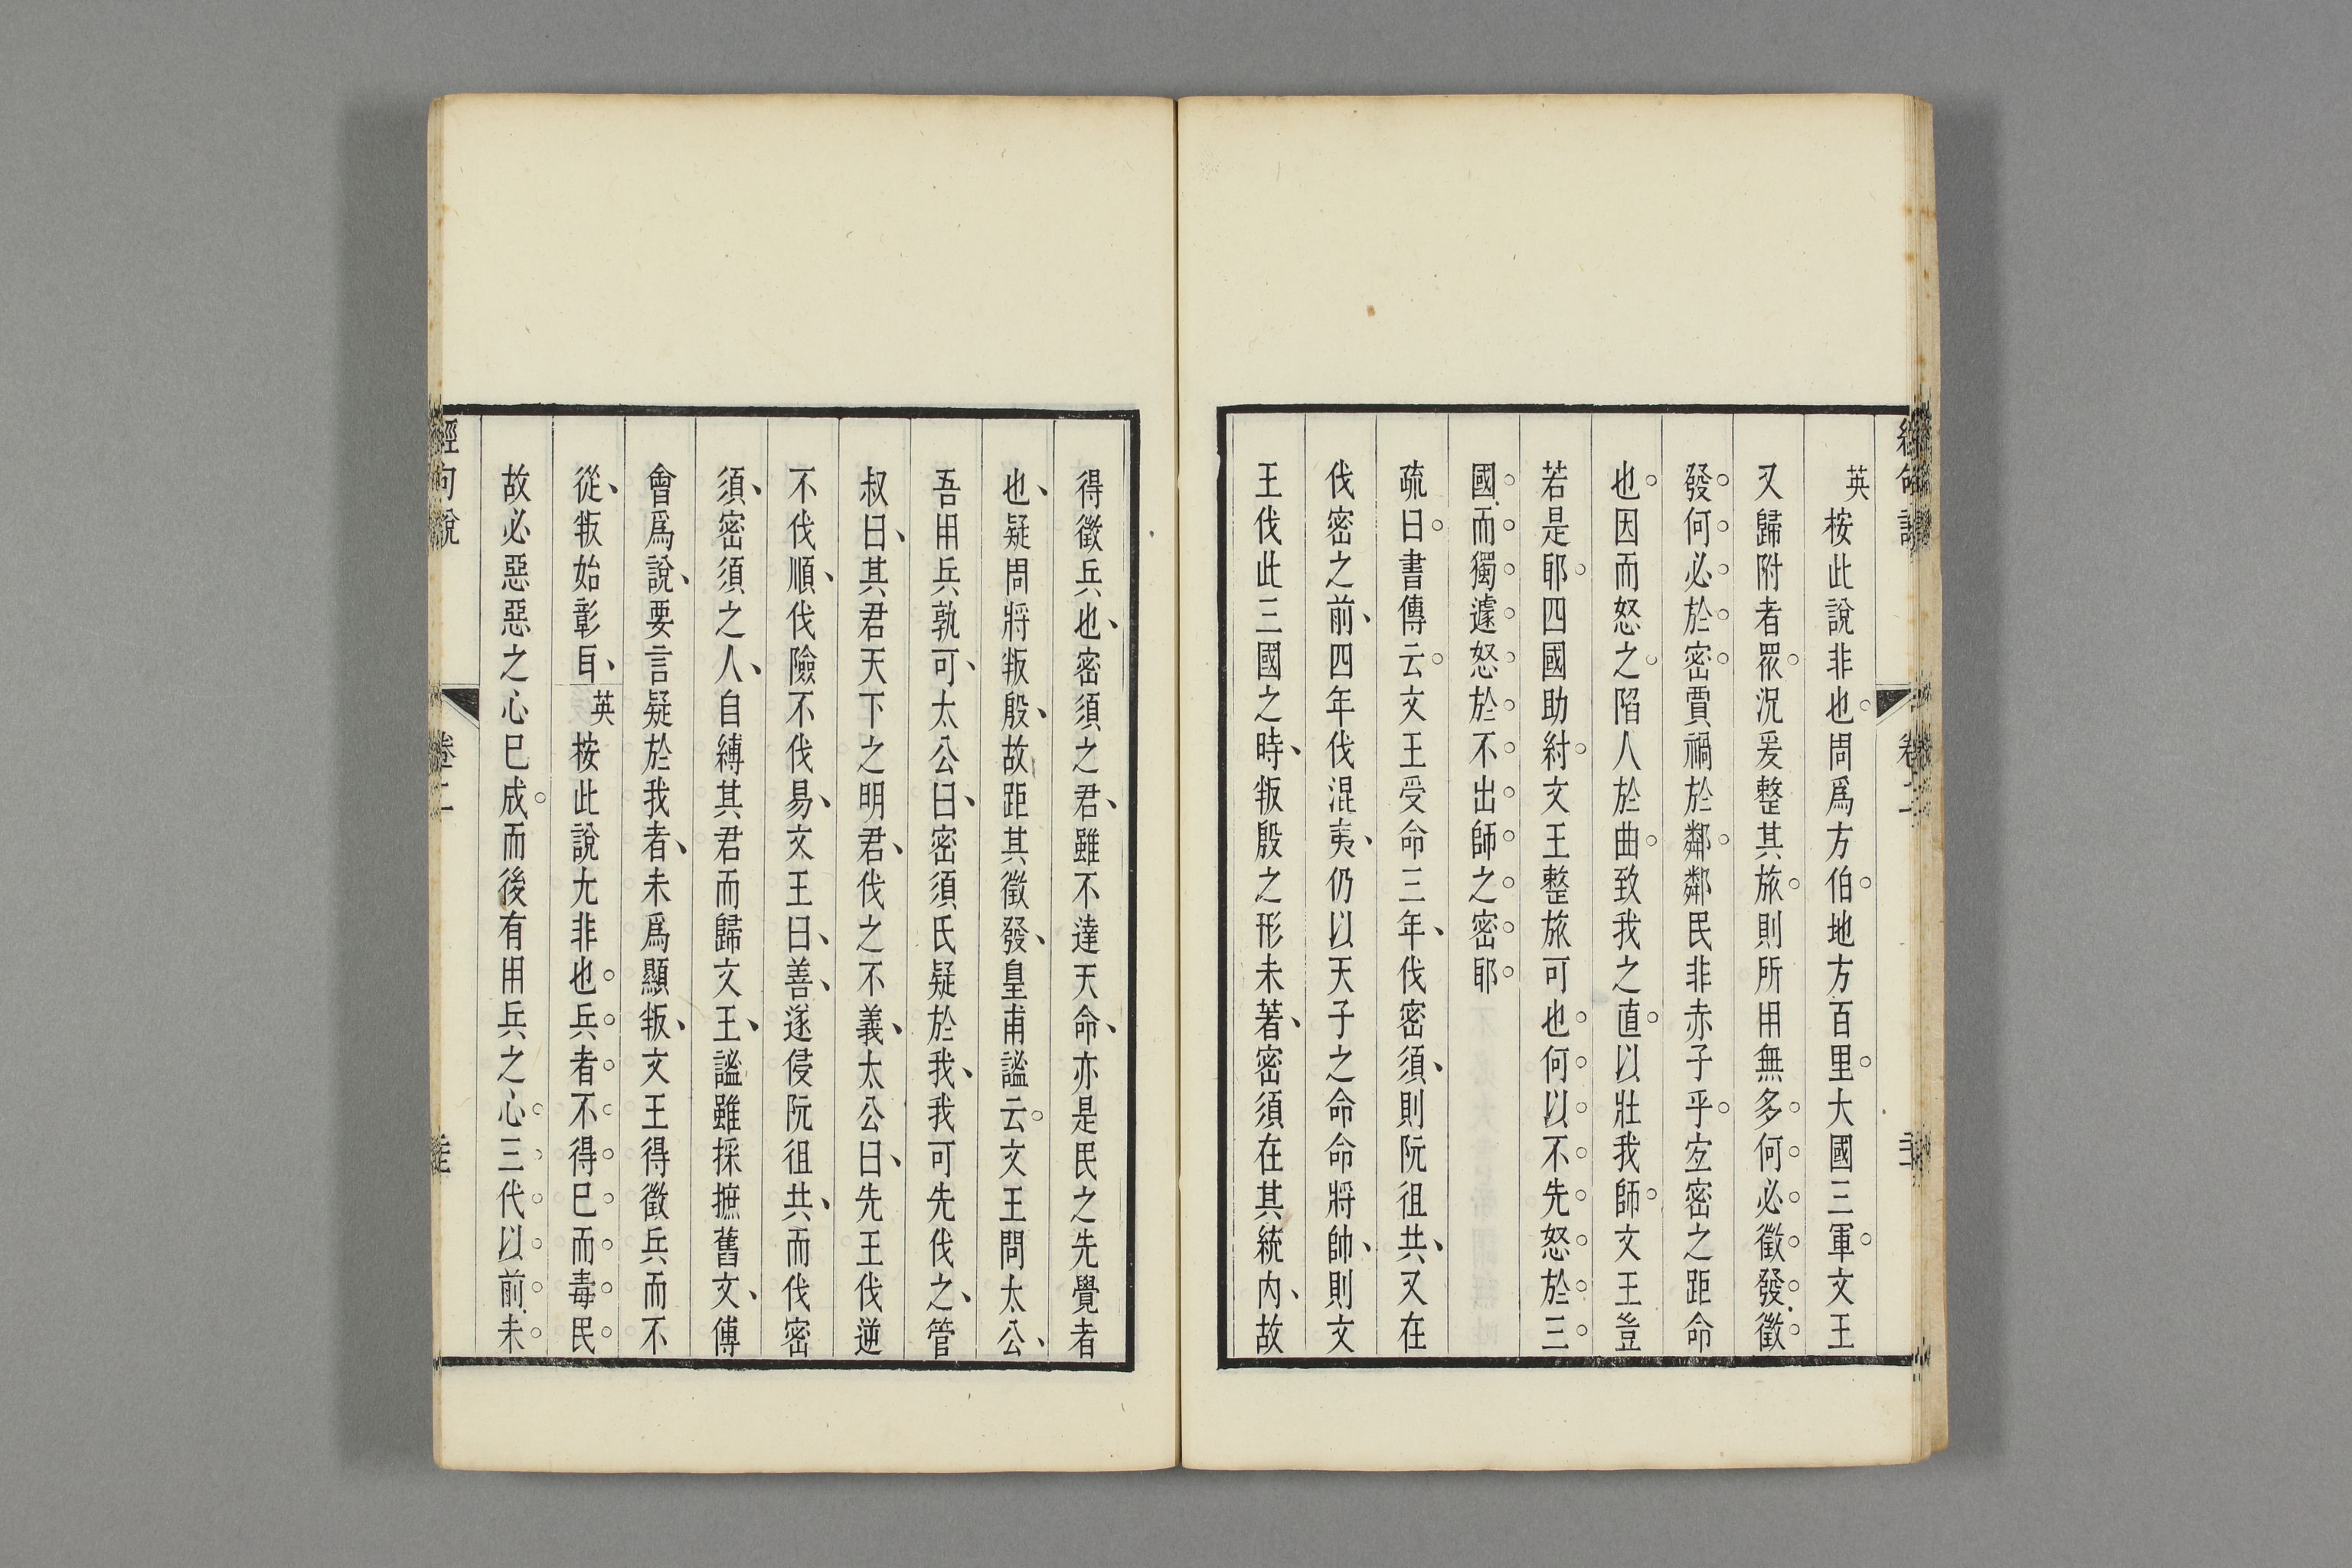 英桉此說非也周爲方伯地方百里大國三軍文王
又歸附者眾況爰整其旅則所用無多何必徵發徵
發何必於密賈禍於鄰鄰民非赤子乎寍密之距命
也因而怒之陷人於曲致我之直以壯我師文王豈
若是耶四國助紂文王整旅可也何以不先怒於三
國而獨遽怒於不出師之密耶
疏曰書傳云文王受命三年伐密須則阮徂共又在
伐密之前四年伐混夷仍以天子之命命將帥則文
王伐此三國之時叛殷之形未著密須在其統內故
得徵兵也密須之君雖不達天命亦是民之先覺者
也疑周將叛殷故距其徵發皇甫謐云文王問太公
吾用兵孰可太公曰密須氏疑於我我可先伐之管
叔曰其君天下之明君伐之不義太公曰先王伐逆
不伐順伐險不伐易文王曰善遂侵阮徂共而伐密
須密須之人自縛其君而歸文王謐雖採摭舊文傅
會爲說要言疑於我者未爲顯叛文王得徵兵而不
從叛始彰耳英桉此說尤非也兵者不得已而毒民
故必惡惡之心已成而後有用兵之心三代以前未
經句說 卷二